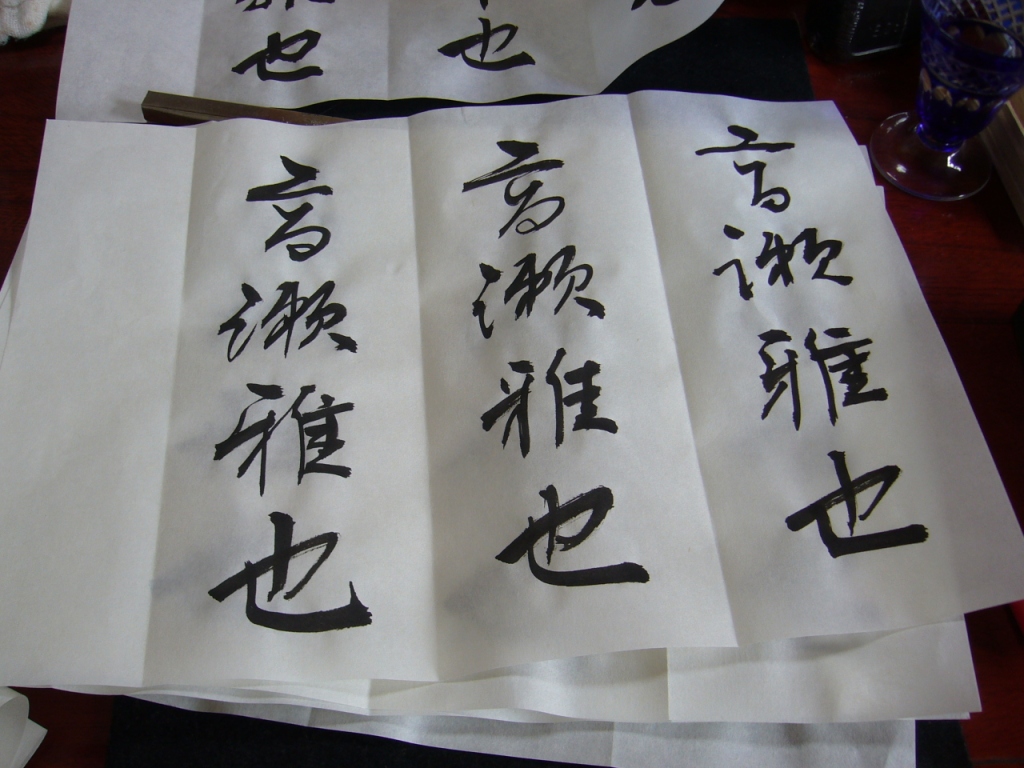 也
也
高瀬雅也
高瀬雅也
高瀬雅也